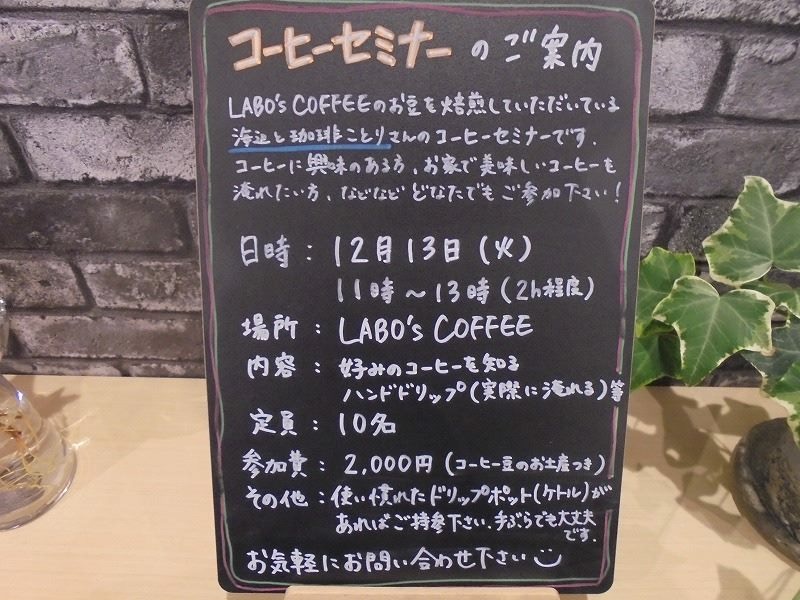 コーヒーセミナーのご案内
LABO's COFFEEのお豆を焙煎していただいている
海辺と珈琲ことりさんのコーヒーセミナーです.
コーヒーに興味のある方、お家で美味しいコーヒーを
淹れたい方、などなど どなたでも ご参加下さい!
日時: 12月13日(火)
11時〜13時(2h程度)
場所: LABO's COFFEE
内容: 好みのコーヒーを知る
ハンドドリップ(実際に淹れる)等
定員: 10名
参加費: 2,000円(コーヒー豆のお土産つき)
その他:使い慣れたドリップポット(ケトル)が
あればご持参下さい.手ぶらでも大丈夫
です.
お気軽にお問い合わせ下さい